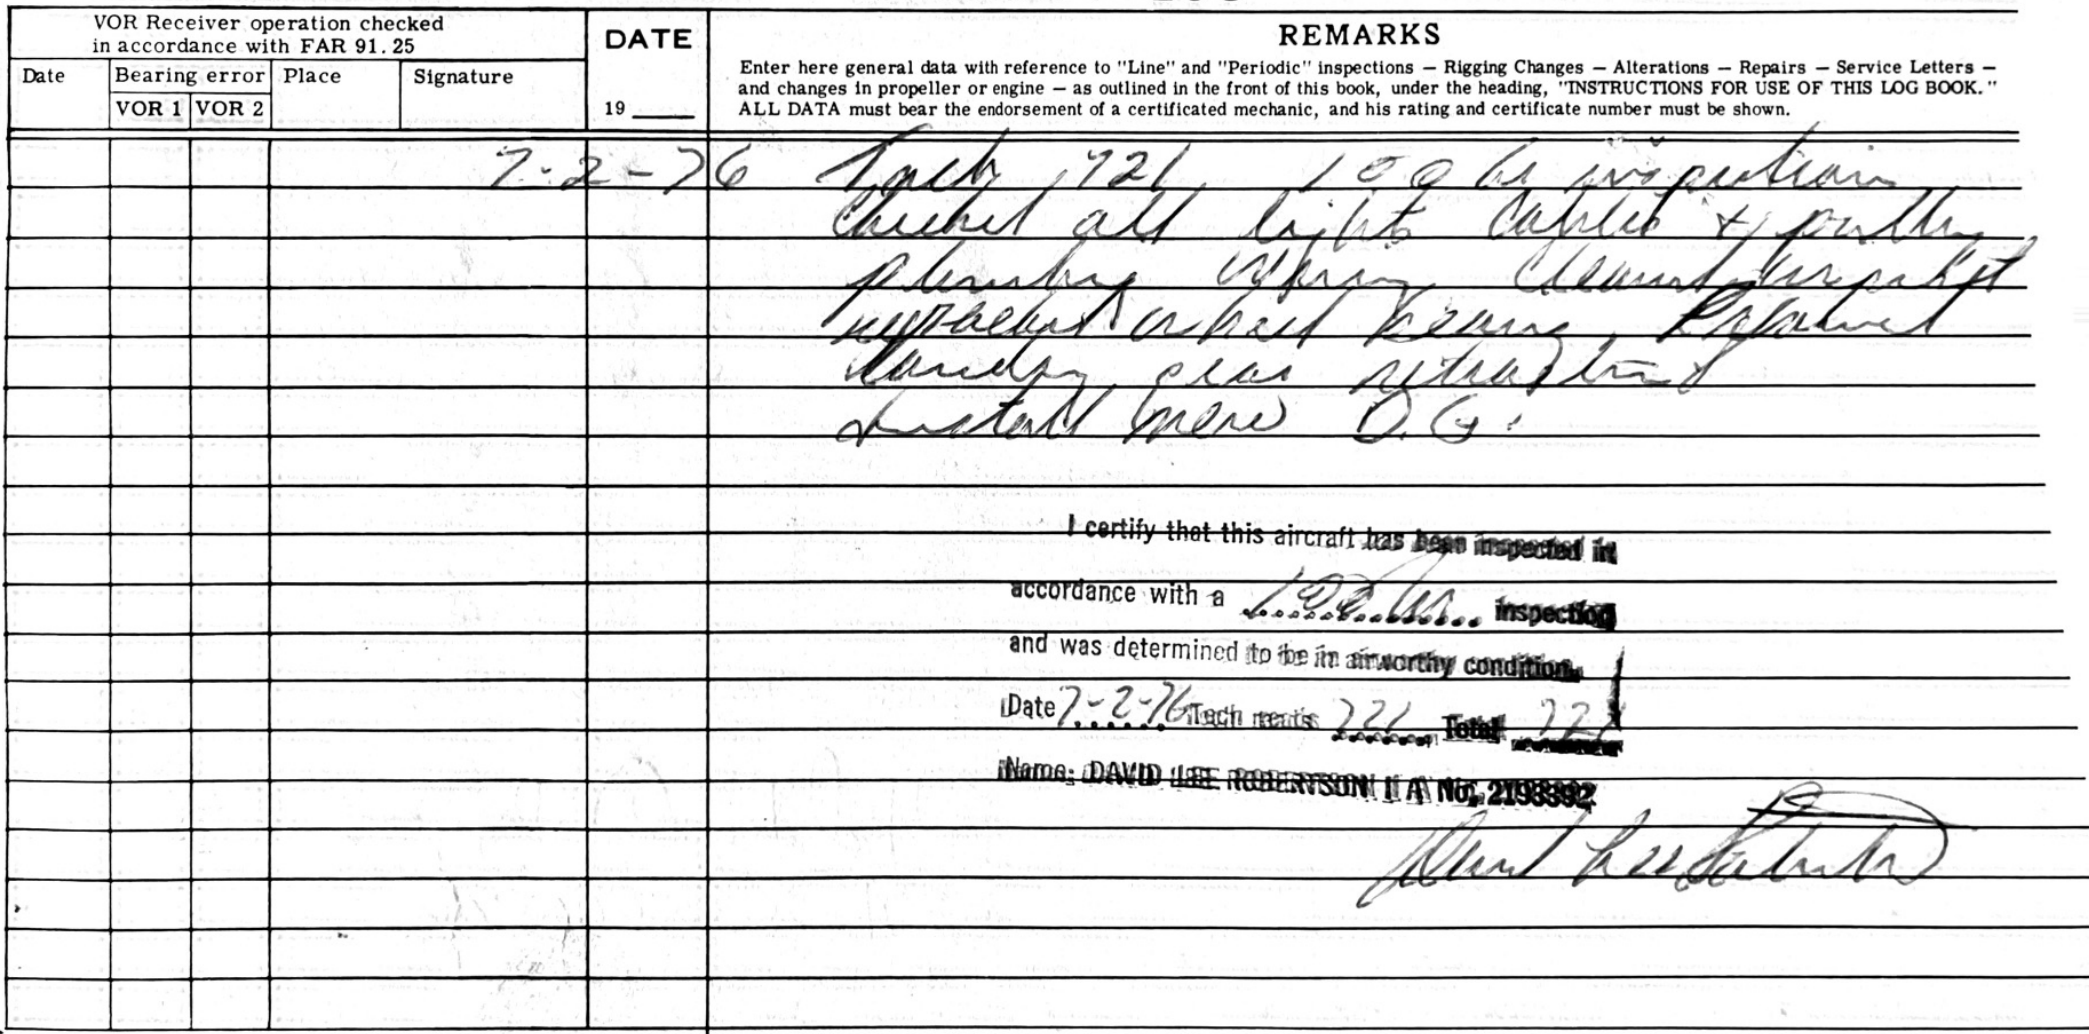 VOR Receiver operation checked
in accordance with FAR 91.25
DATE
REMARKS
Date
Bearing error
Place
Signature
VOR 1
VOR 2
19
Enter here general data with reference to "Line" and "Periodic" inspections — Rigging Changes — Alterations — Repairs — Service Letters —
and changes in propeller or engine — as outlined in the front of this book, under the heading, "INSTRUCTIONS FOR USE OF THIS LOG BOOK."
ALL DATA must bear the endorsement of a certificated mechanic, and his rating and certificate number must be shown.
7-2-76 Tach 721 100 hr inspection
Checked all lights cables &
wiring Cleaned
wheel
landing gear
Install new D.G.
I certify that this aircraft has been inspected in
accordance with a 100 hr inspection
and was determined to be in airworthy condition.
Date 7-2-76 Tach 721 Total 721
Name: DAVID LEE ROBERTSON I A No. 2198392
David Lee Robertson